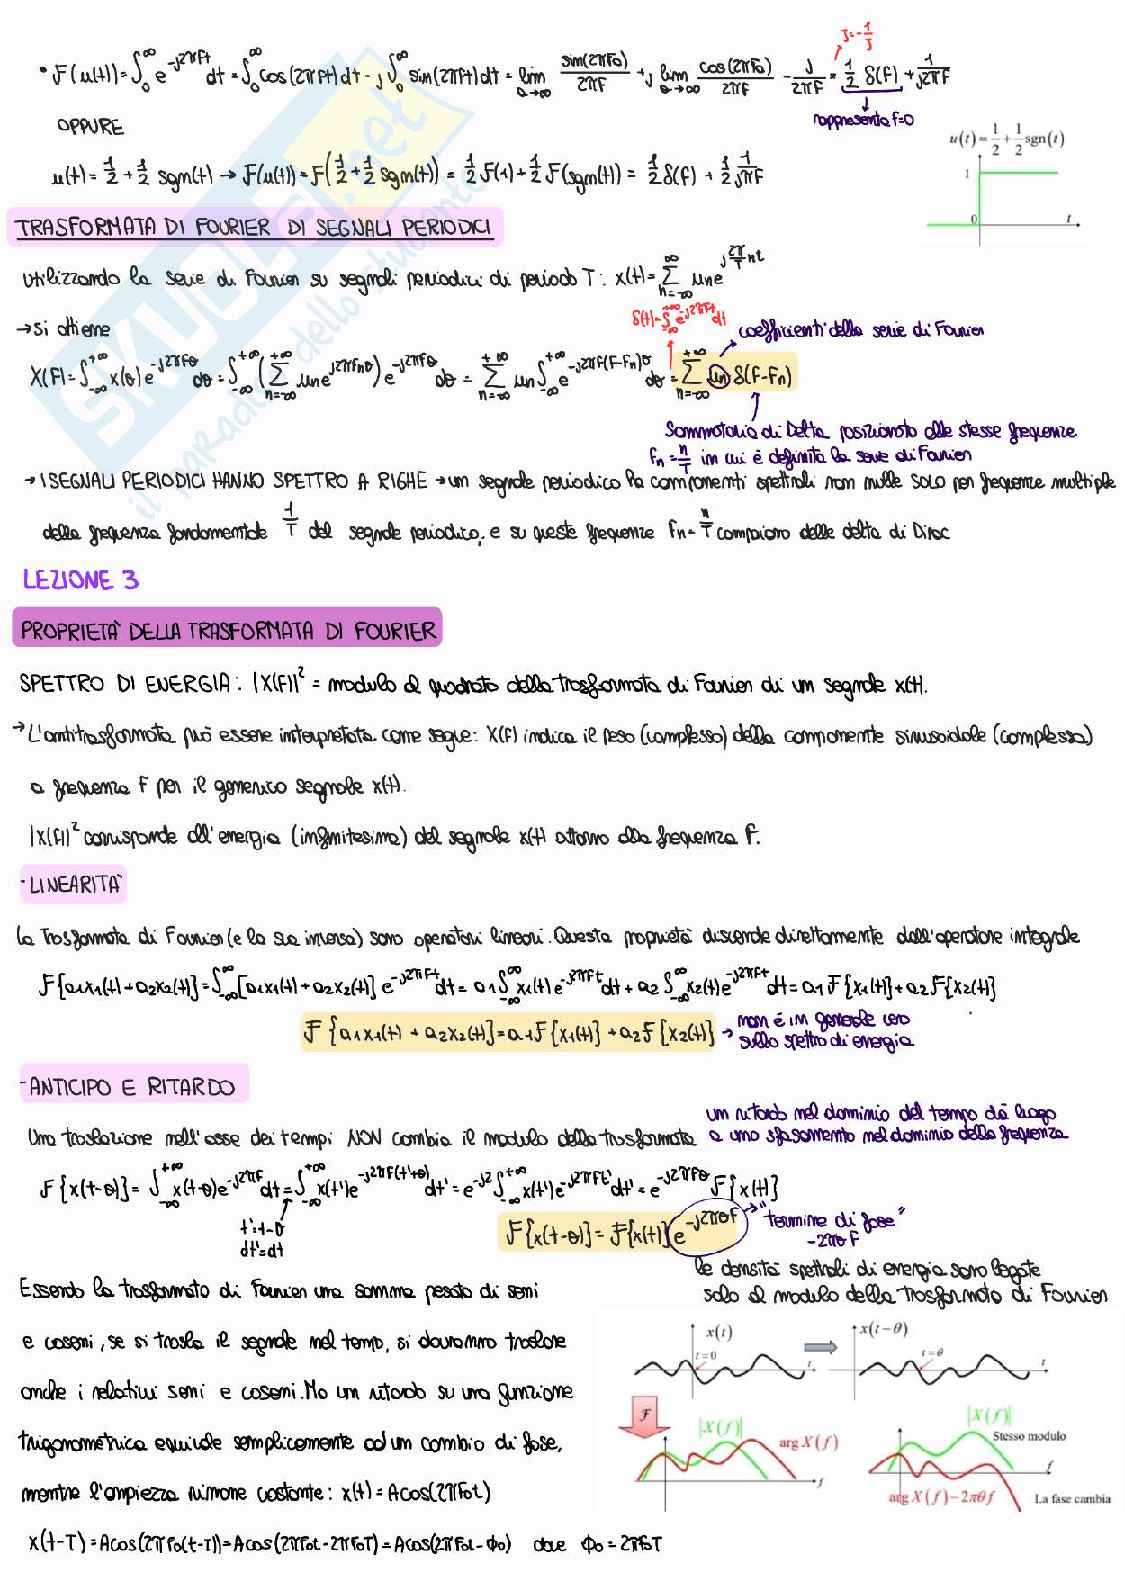 J=-1/J
• F(u(t))=∫₀^∞ e^{-j2πft}dt=∫₀^∞cos(2πft)dt-j∫₀^∞sin(2πft)dt=lim_{a→∞} sin(2πfa)/2πf +j lim_{a→∞} cos(2πfa)/2πf - j/2πf = 1/2 δ(f)+1/j2πf
rappresenta f=0
OPPURE
u(t)=1/2+1/2 sgn(t)
u(t)=1/2+1/2 sgn(t)→F(u(t))=F(1/2+1/2 sgn(t))=1/2 F(1)+1/2 F(sgn(t))=1/2 δ(f)+1/2 1/jπf
1
0
t
TRASFORMATA DI FOURIER DI SEGNALI PERIODICI
Utilizzando la serie di Fourier su segnali periodici di periodo T: x(t)=Σ_{n=-∞}^{∞} μn e^{j2π/T nt}
δ(t)=∫_{-∞}^{+∞}e^{-j2πft}dt
→si ottiene
coefficienti della serie di Fourier
X(f)=∫_{-∞}^{+∞}x(θ)e^{-j2πfθ}dθ=∫_{-∞}^{+∞}(Σ_{n=-∞}^{+∞}μn e^{j2πfnθ})e^{-j2πfθ}dθ=Σ_{n=-∞}^{+∞}μn∫_{-∞}^{+∞}e^{-j2πf(f-fn)θ}dθ=Σ_{n=-∞}^{+∞}μn δ(f-fn)
Sommatoria di Delta posizionate alle stesse frequenze
fn=n/T in cui è definita la serie di Fourier
→I SEGNALI PERIODICI HANNO SPETTRO A RIGHE→un segnale periodico ha componenti spettrali non nulle SOLO per frequenze multiple
della frequenza fondamentale 1/T del segnale periodico, e su queste frequenze fn=n/T compaiono delle delta di Dirac
LEZIONE 3
PROPRIETÀ DELLA TRASFORMATA DI FOURIER
SPETTRO DI ENERGIA: |X(f)|² = modulo al quadrato della trasformata di Fourier di un segnale x(t).
→L'antitrasformata può essere interpretata come segue: X(f) indica il peso (complesso) della componente sinusoidale (complessa)
a frequenza f per il generico segnale x(t).
|X(f)|² corrisponde all'energia (infinitesima) del segnale x(t) attorno alla frequenza f.
·LINEARITÀ
La Trasformata di Fourier (e la sua inversa) sono operatori lineari. Questa proprietà discende direttamente dall'operatore integrale
F{a1x1(t)+a2x2(t)}=∫_{-∞}^{∞}[a1x1(t)+a2x2(t)]e^{-j2πft}dt=a1∫_{-∞}^{∞}x1(t)e^{-j2πft}dt+a2∫_{-∞}^{∞}x2(t)e^{-j2πft}dt=a1F{x1(t)}+a2F{x2(t)}
F{a1x1(t)+a2x2(t)}=a1F{x1(t)}+a2F{x2(t)} → non è in generale vero
sullo spettro di energia
-ANTICIPO E RITARDO
un ritardo nel dominio del tempo dà luogo
Una traslazione nell'asse dei tempi NON cambia il modulo della trasformata a uno sfasamento nel dominio della frequenza
F{x(t-θ)}=∫_{-∞}^{+∞}x(t-θ)e^{-j2πf}dt=∫_{-∞}^{+∞}x(t')e^{-j2πf(t'+θ)}dt'=e^{-j2}∫_{-∞}^{+∞}x(t')e^{-j2πft'}dt'=e^{-j2πfθ}F{x(t)}
t'=t-θ
dt'=dt
F{x(t-θ)}=F{x(t)}e^{-j2πθf} → "termine di fase"
-2πθf
le densità spettrali di energia sono legate
solo al modulo della trasformata di Fourier
Essendo la trasformata di Fourier una somma pesata di seni
e coseni, se si trasla il segnale nel tempo, si dovranno traslare
anche i relativi seni e coseni. Ma un ritardo su una funzione
trigonometrica equivale semplicemente ad un cambio di fase,
mentre l'ampiezza rimane costante: x(t)=Acos(2πf0t)
x(t-T)=Acos(2πf0(t-T))=Acos(2πf0t-2πf0T)=Acos(2πf0t-ϕ0) dove ϕ0=2πf0T
x(t)
t=0
t
x(t-θ)
t=θ
t
F
|X(f)|
arg X(f)
f
|X(f)|
Stesso modulo
f
arg X(f)-2πθf
La fase cambia
SKUOLA.net
il paradiso dello studente